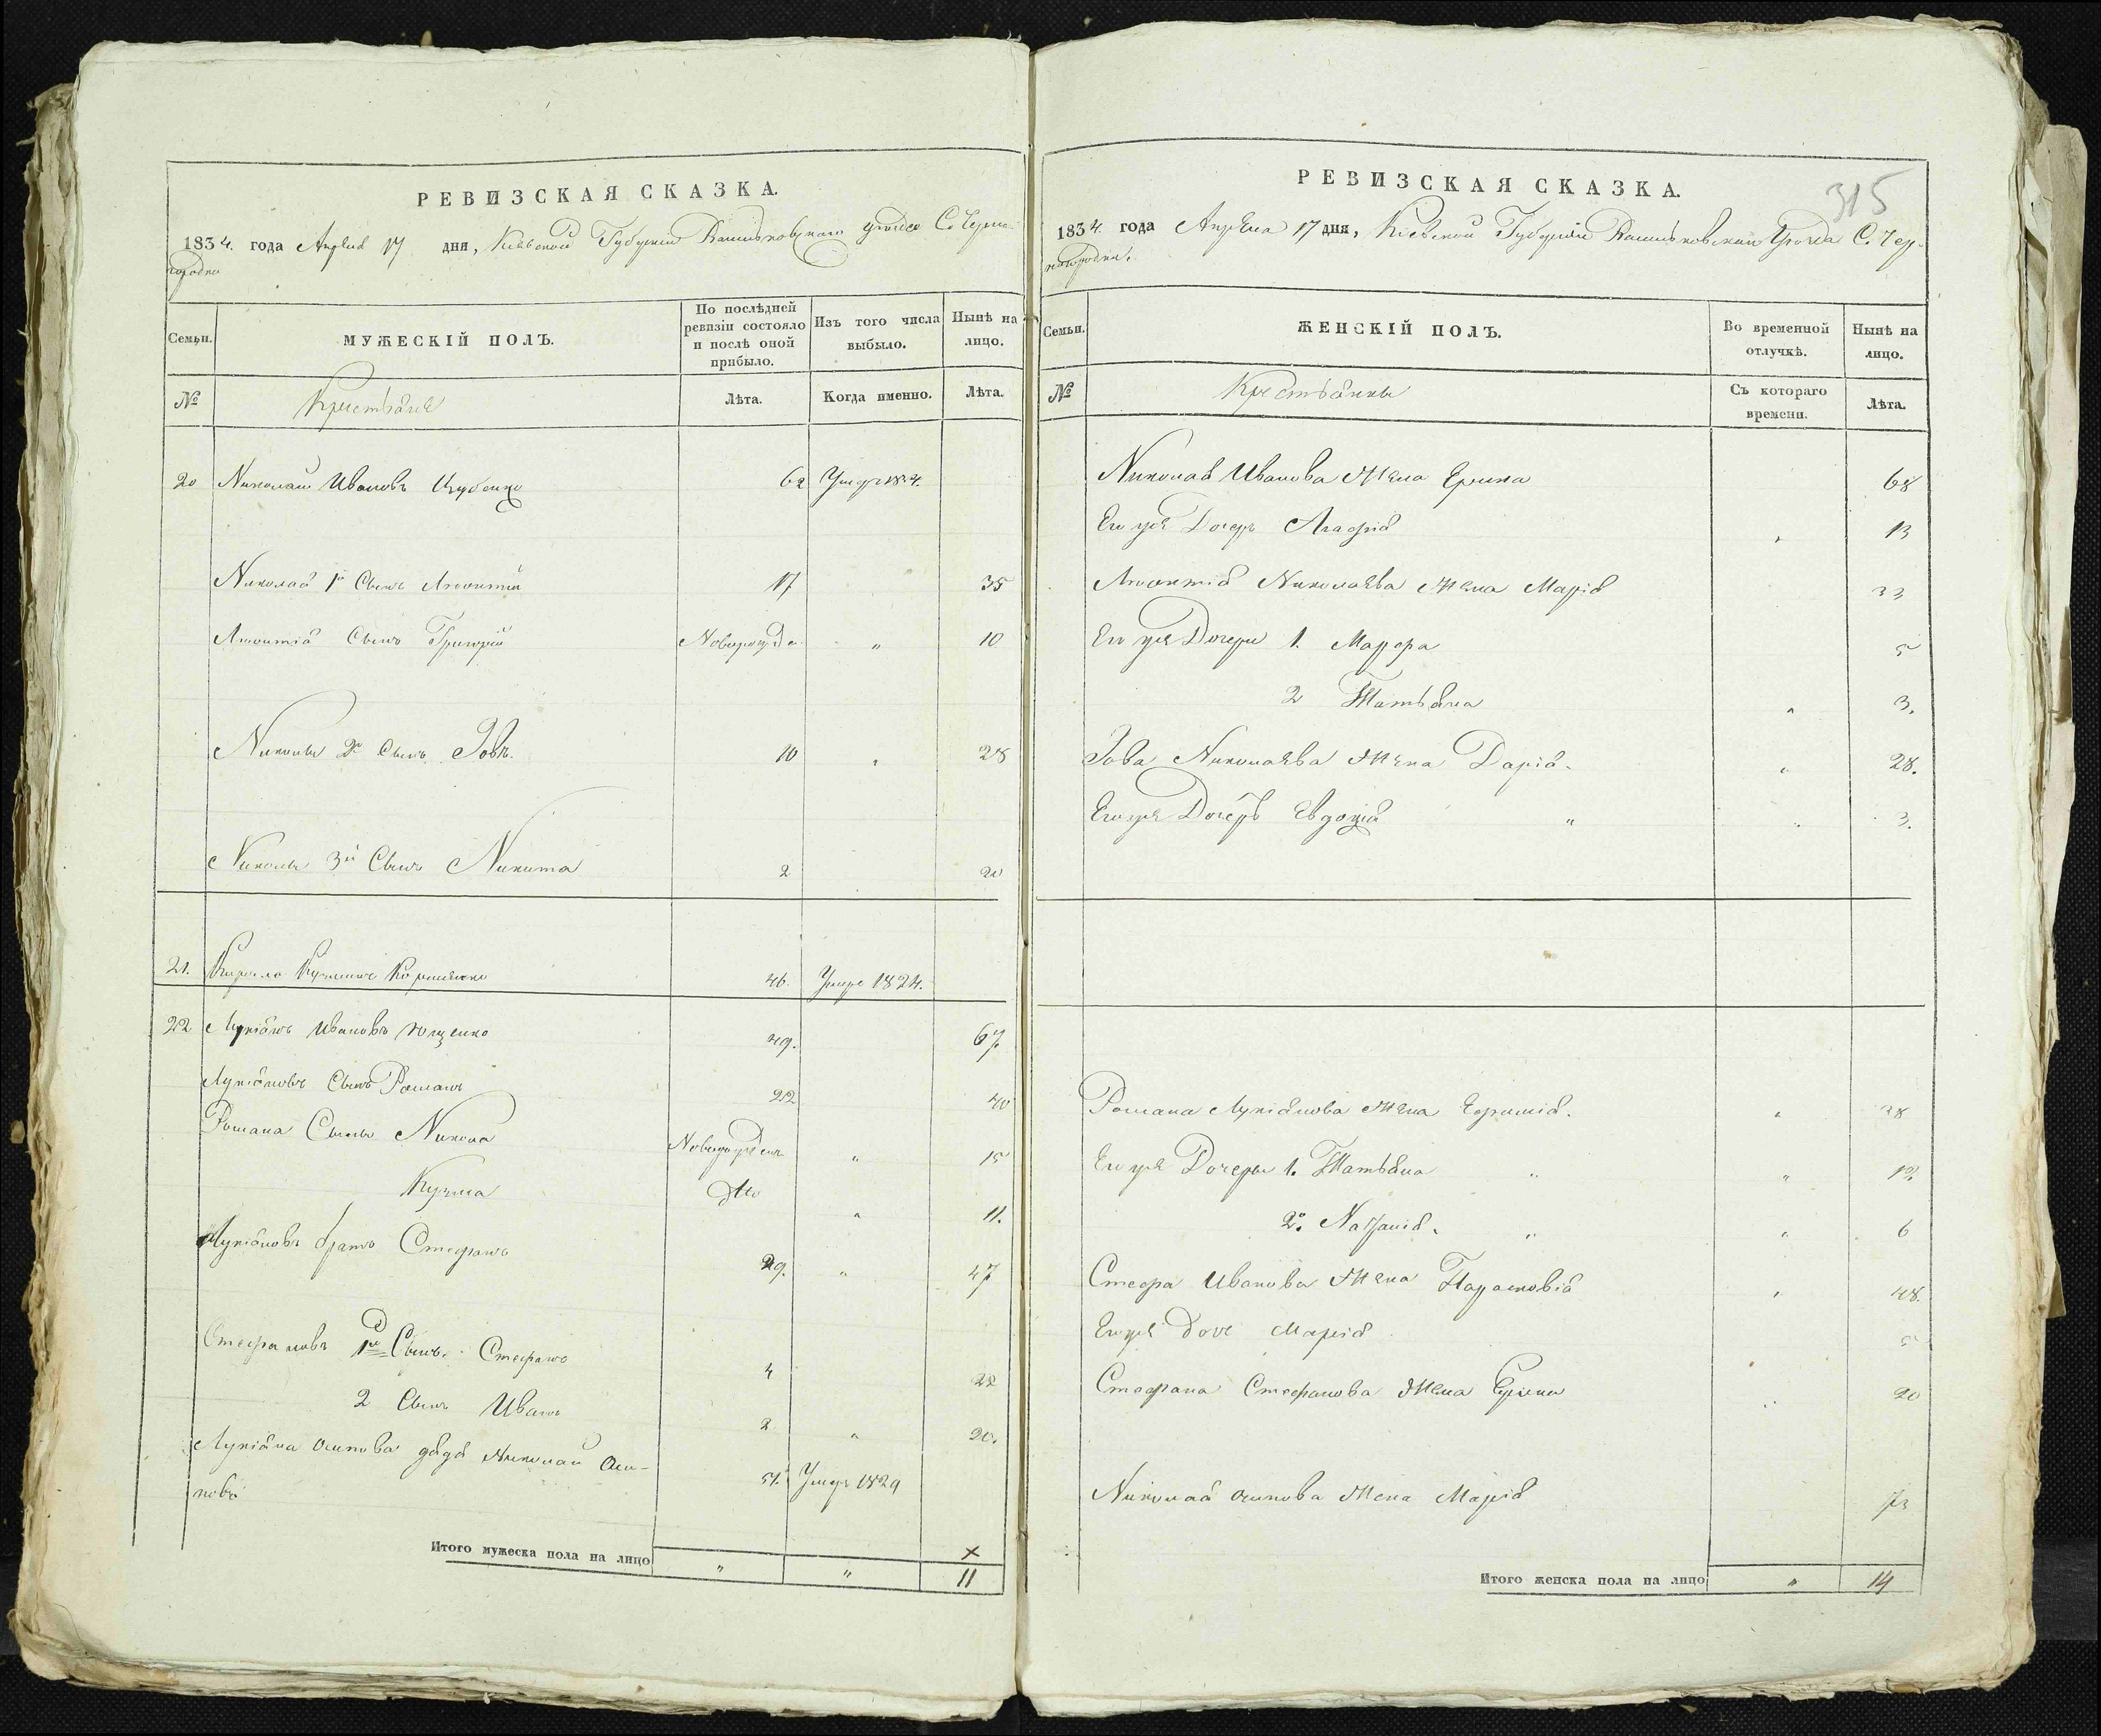 РЕВИЗСКАЯ СКАЗКА.
1834. года Апреля 17 дня, Киевской Губернии Васильковскаго уезда С. Черно
городки
Семьи.
МУЖЕСКІЙ ПОЛЪ.
По послѣдней
ревизіи состояло
и послѣ оной
прибыло.
Изъ того числа
выбыло.
Нынѣ на
лицо.
№
Крестьяне
Лѣта.
Когда именно.
Лѣта.
20 Николай Ивановъ 62
Николая 1й Сынъ Леонтий 17 35
Леонтія Сынъ Григорий Новорожде. " 10
Николы 2й Сынъ Іовъ. 10 " 28
Николы 3й Сынъ Никита 2 20
21. Кирило 46. Умре 1824.
22 Лукіянъ Ивановъ Ющенко 49. 67
Лукіяновъ Сынъ Романъ 22 40
Романа Сыны Никола Новорожден " 15
Кузма дто " 11.
Лукіяновъ братъ Стефанъ 29. " 47
Стефановъ 1й Сынъ. Стефанъ 4 22
2 Сынъ Иванъ 2 " 20.
Лукіяна Осипова дядя Николай Оси-
повъ 51. Умеръ 1829
Итого мужеска пола на лицо " " 11
РЕВИЗСКАЯ СКАЗКА.
315
1834. года Апреля 17 дня, Киевской Губерніи Васильковскаго Уезда С. Чер-
ногородки.
Семьи.
ЖЕНСКІЙ ПОЛЪ.
Во временной
отлучкѣ.
Нынѣ на
лицо.
№
Крестьянки
Съ котораго
времени.
Лѣта.
Николая Иванова Жена Ерина 68
Его же Дочерь Агафія " 13
Леонтія Николаева Жена Марія 33
Его же Дочери 1. Марфа 5
2 Татьяна " 3.
Іова Николаева Жена Дарія. " 28.
Его же Дочерь Евдокія " " 3.
Романа Лукіянова Жена Ефимія. " 38
Его же Дочери 1. Татьяна " " 12
2. " " 6
Стефа Иванова Жена Парасковія " 48.
Его же Доче Марія 5
Стефана Стефанова Жена Ерина " 20
Николая Осипова Жена Марія 73
Итого женска пола на лицо " 14